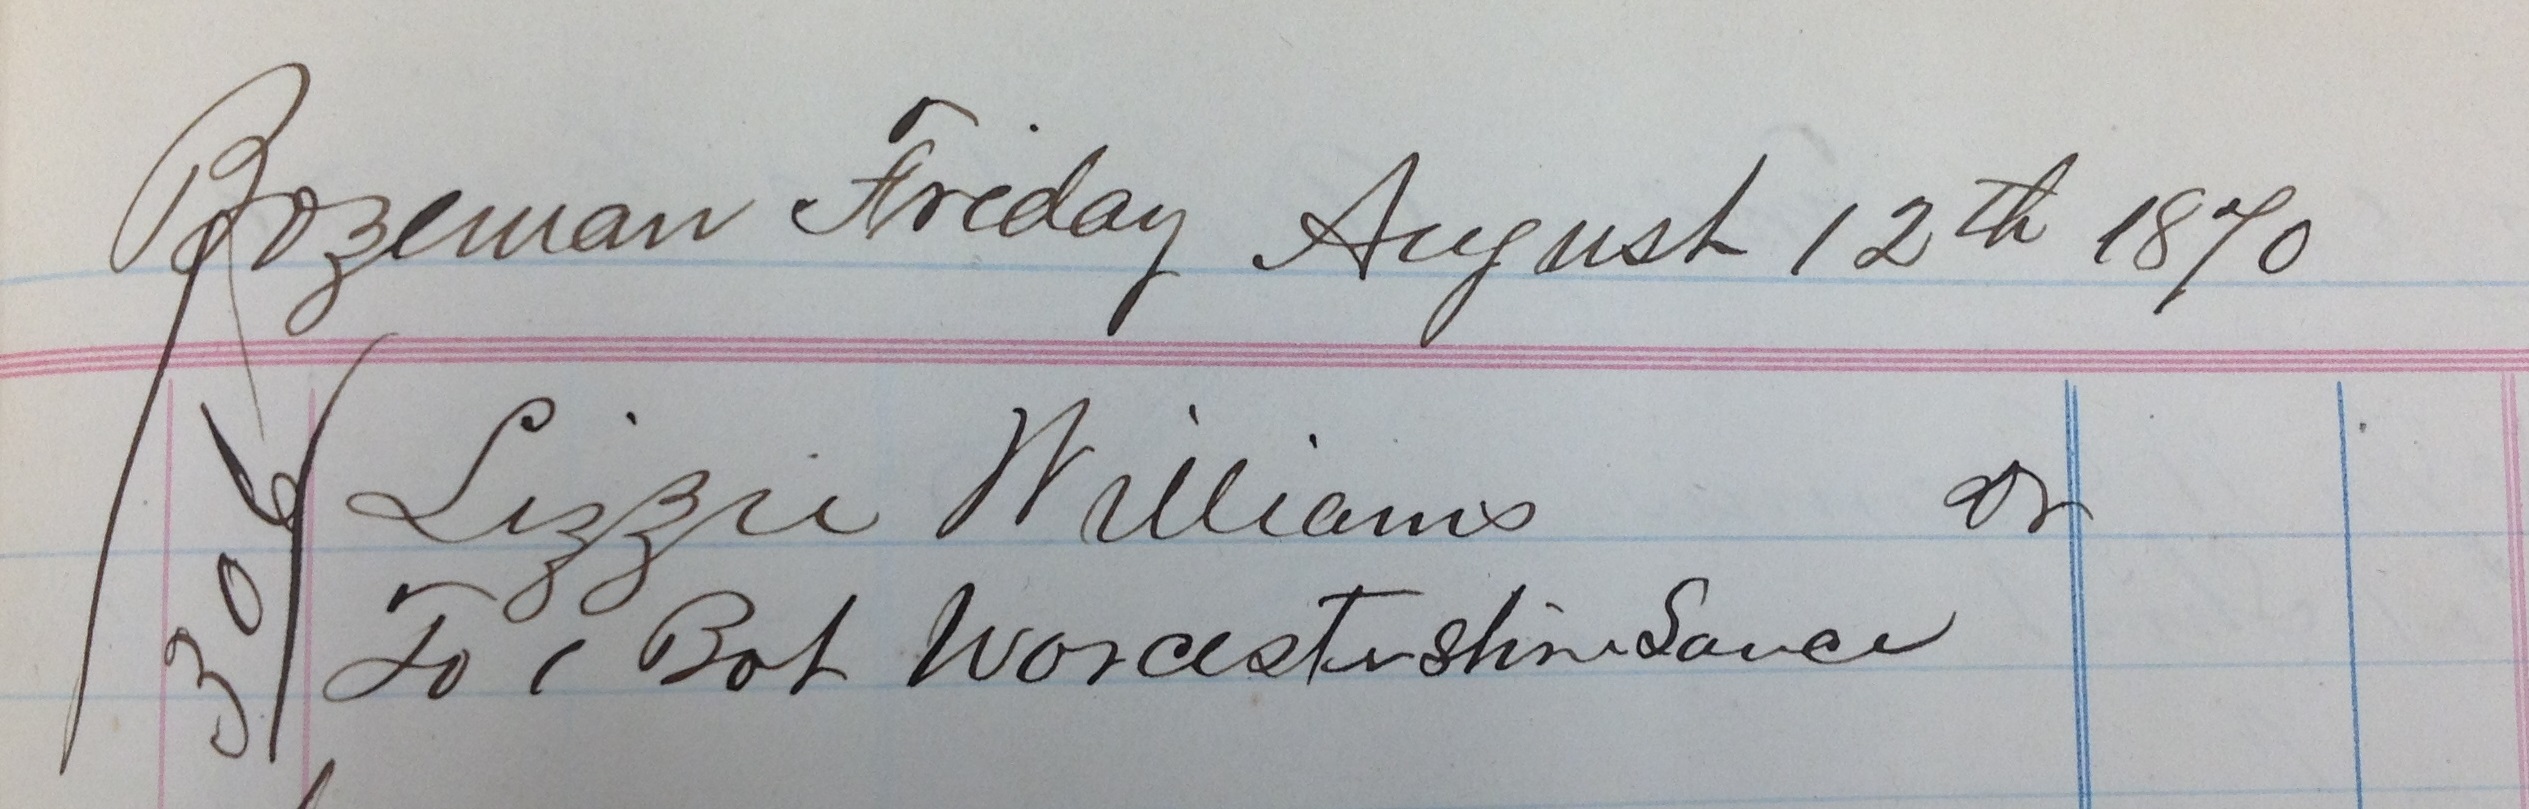 Bozeman Friday August 12th 1870
306
Lizzie Williams Dr
To 1 Bot Worcestershire Sauce